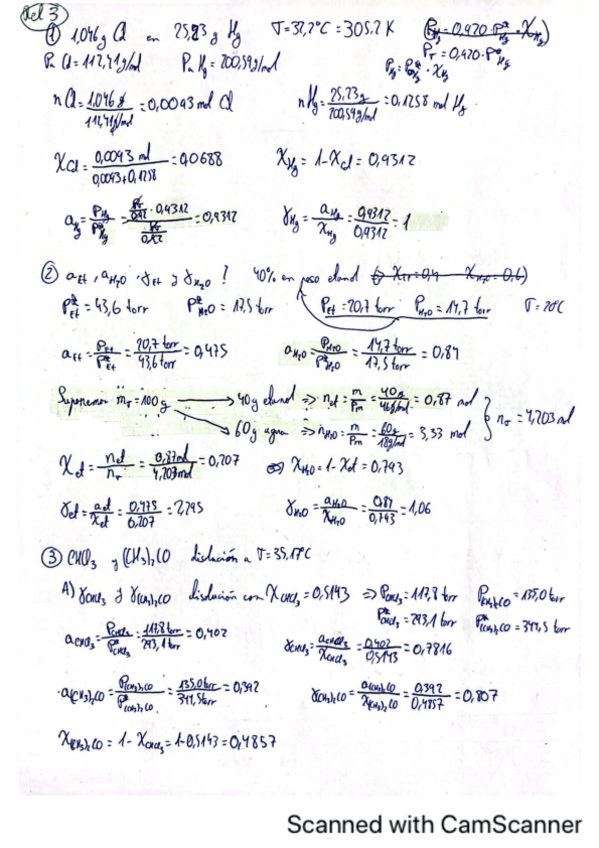 Rel 3
① 1,046 g Cd en 25,23 g Hg T=32,2ºC = 305.2 K (P_Hg = 0,920·P*_Hg·X_Hg)
P_T = 0,920·P*_Hg
Pm Cd = 112,41 g/mol Pm Hg = 200,59 g/mol P_Hg = P*_Hg · X_Hg
nCd = 1,046 g / 112,41 g/mol = 0,0093 mol Cd nHg = 25,23g / 200,59 g/mol = 0,1258 mol Hg
X_Cd = 0,0093 mol / 0,0093+0,1258 = 0,0688 X_Hg = 1 - X_Cd = 0,9312
a_Hg = P_Hg / P*_Hg = P_T/0,92 · 0,9312 / P_T/0,92 = 0,9312 γ_Hg = a_Hg / X_Hg = 0,9312 / 0,9312 = 1
② a_Et, a_H2O, γ_Et y γ_H2O ? 40% en peso etanol (⇒ X_Et = 0,4 X_H2O = 0,6)
P*_Et = 43,6 torr P*_H2O = 17,5 torr P_Et = 20,7 torr P_H2O = 14,7 torr T = 20ºC
a_Et = P_Et / P*_Et = 20,7 torr / 43,6 torr = 0,475 a_H2O = P_H2O / P*_H2O = 14,7 torr / 17,5 torr = 0,84
Suponemos m_T = 100g → 40g etanol ⇒ n_et = m/Pm = 40g / 46g/mol = 0,87 mol
→ 60g agua ⇒ n_H2O = m/Pm = 60g / 18g/mol = 3,33 mol } n_T = 4,203 mol
X_et = n_et / n_T = 0,87 mol / 4,203 mol = 0,207 ⇒ X_H2O = 1 - X_et = 0,793
γ_et = a_et / X_et = 0,475 / 0,207 = 2,295 γ_H2O = a_H2O / X_H2O = 0,84 / 0,793 = 1,06
③ CHCl3 y (CH3)2CO disolución a T = 35,17ºC
A) γ_CHCl3 y γ_(CH3)2CO disolución con X_CHCl3 = 0,5143 ⇒ P_CHCl3 = 117,8 torr P_(CH3)2CO = 135,0 torr
P*_CHCl3 = 293,1 torr P*_(CH3)2CO = 344,5 torr
a_CHCl3 = P_CHCl3 / P*_CHCl3 = 117,8 torr / 293,1 torr = 0,402 γ_CHCl3 = a_CHCl3 / X_CHCl3 = 0,402 / 0,5143 = 0,7816
· a_(CH3)2CO = P_(CH3)2CO / P*_(CH3)2CO = 135,0 torr / 344,5 torr = 0,392 γ_(CH3)2CO = a_(CH3)2CO / X_(CH3)2CO = 0,392 / 0,4857 = 0,807
X_(CH3)2CO = 1 - X_CHCl3 = 1 - 0,5143 = 0,4857
Scanned with CamScanner